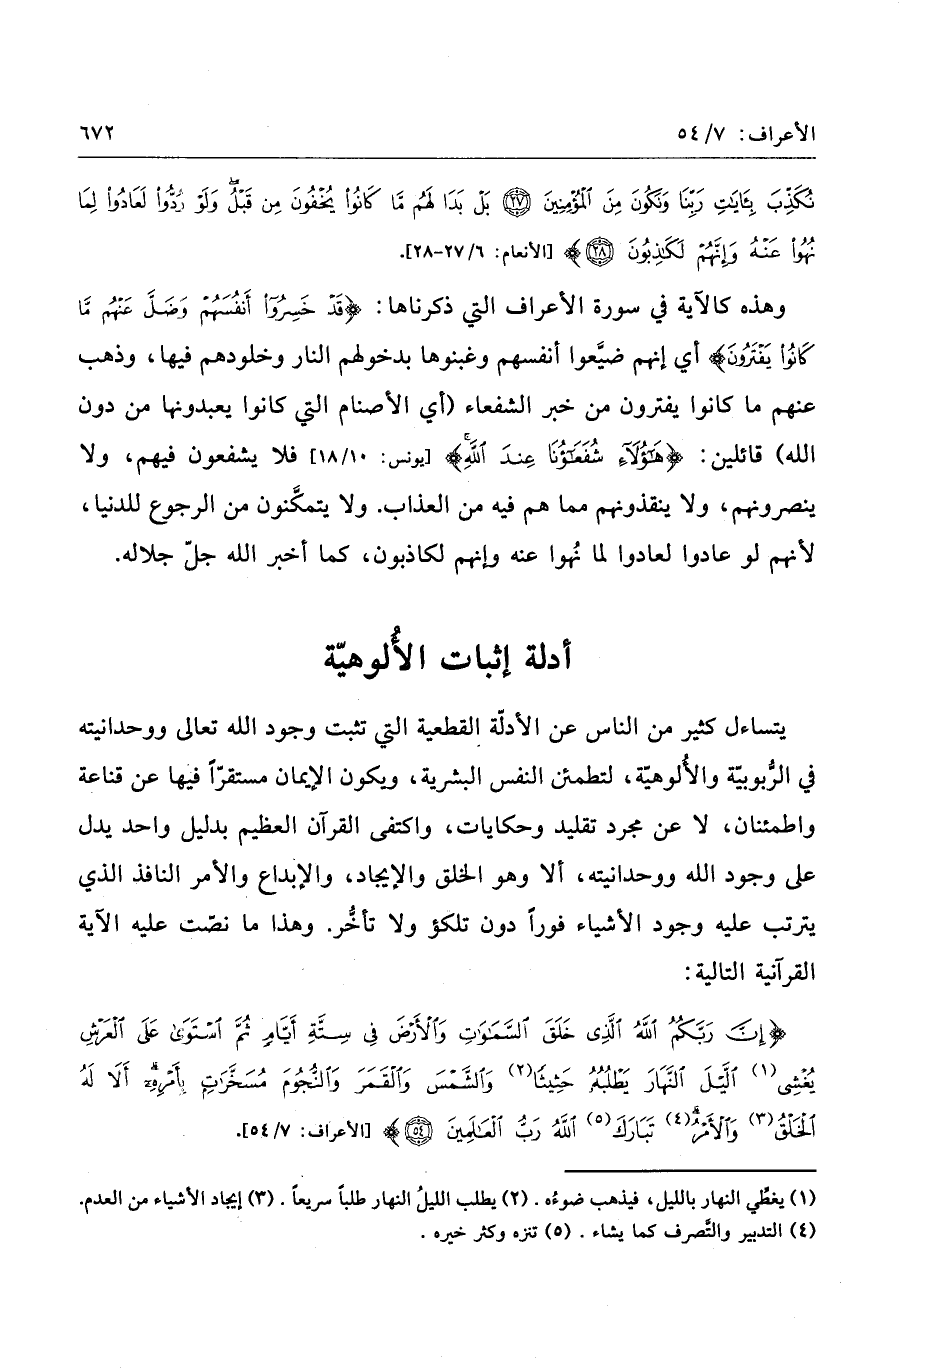 الأعراف: ٥٤/٧ ٦٧٢
نُكَذِّبَ بِـَٔايَٰتِ رَبِّنَا وَنَكُونَ مِنَ ٱلْمُؤْمِنِينَ ۝٢٧ بَلْ بَدَا لَهُم مَّا كَانُوا۟ يُخْفُونَ مِن قَبْلُ ۖ وَلَوْ رُدُّوا۟ لَعَادُوا۟ لِمَا
نُهُوا۟ عَنْهُ وَإِنَّهُمْ لَكَٰذِبُونَ ۝٢٨﴾ [الأنعام: ٢٧/٦-٢٨].
وهذه كالآية في سورة الأعراف التي ذكرناها: ﴿قَدْ خَسِرُوٓا۟ أَنفُسَهُمْ وَضَلَّ عَنْهُم مَّا
كَانُوا۟ يَفْتَرُونَ﴾ أي إنهم ضيَّعوا أنفسهم وغبنوها بدخولهم النار وخلودهم فيها، وذهب
عنهم ما كانوا يفترون من خبر الشفعاء (أي الأصنام التي كانوا يعبدونها من دون
الله) قائلين: ﴿هَٰٓؤُلَآءِ شُفَعَٰٓؤُنَا عِندَ ٱللَّهِ ۚ﴾ [يونس: ١٨/١٠] فلا يشفعون فيهم، ولا
ينصرونهم، ولا ينقذونهم مما هم فيه من العذاب. ولا يتمكَّنون من الرجوع للدنيا،
لأنهم لو عادوا لعادوا لما نُهوا عنه وإنهم لكاذبون، كما أخبر الله جلّ جلاله.
أدلة إثبات الأُلوهيّة
يتساءل كثير من الناس عن الأدلّة القطعية التي تثبت وجود الله تعالى ووحدانيته
في الرُّبوبيّة والأُلوهيّة، لتطمئن النفس البشرية، ويكون الإيمان مستقرّاً فيها عن قناعة
واطمئنان، لا عن مجرد تقليد وحكايات، واكتفى القرآن العظيم بدليل واحد يدل
على وجود الله ووحدانيته، ألا وهو الخلق والإيجاد، والإبداع والأمر النافذ الذي
يترتب عليه وجود الأشياء فوراً دون تلكؤ ولا تأخُّر. وهذا ما نصّت عليه الآية
القرآنية التالية:
﴿إِنَّ رَبَّكُمُ ٱللَّهُ ٱلَّذِى خَلَقَ ٱلسَّمَٰوَٰتِ وَٱلْأَرْضَ فِى سِتَّةِ أَيَّامٍ ثُمَّ ٱسْتَوَىٰ عَلَى ٱلْعَرْشِ
يُغْشِى(١) ٱلَّيْلَ ٱلنَّهَارَ يَطْلُبُهُۥ حَثِيثًا(٢) وَٱلشَّمْسَ وَٱلْقَمَرَ وَٱلنُّجُومَ مُسَخَّرَٰتٍۭ بِأَمْرِهِۦٓ ۗ أَلَا لَهُ
ٱلْخَلْقُ(٣) وَٱلْأَمْرُ ۗ(٤) تَبَارَكَ(٥) ٱللَّهُ رَبُّ ٱلْعَٰلَمِينَ ۝٥٤﴾ [الأعراف: ٥٤/٧].
(١) يغطّي النهار بالليل، فيذهب ضوءُه. (٢) يطلب الليلُ النهار طلباً سريعاً. (٣) إيجاد الأشياء من العدم.
(٤) التدبير والتَّصرف كما يشاء. (٥) تنزه وكثر خيره.